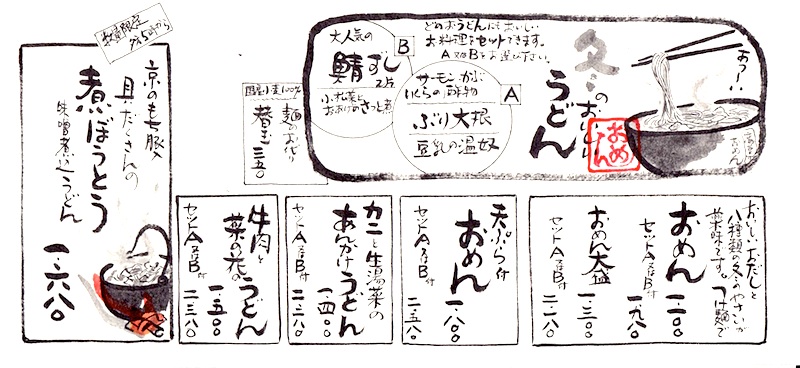 冬のおいしいうどん
おめん
あつーい
どのおうどんにもおいしい
お料理をセットできます。
A又はBをお選び下さい。
B
大人気の
鯖ずし
2片
小松菜と
おあげのさっと煮
A
サーモン、かぶ
いくらの酢物
ぶり大根
豆乳の温奴
国産小麦100%
麺のお代り
替玉 三五〇
数量限定
夕5時から
京のもち豚
具だくさんの
煮ぼうとう
味噌煮込うどん
一・六八〇
おいしいおだしと
八種類の冬のやさいが
薬味です。つけ麺で
おめん 一・一二〇
セットA又はB付 一・九八〇
おめん大盛 一・三〇〇
セットA又はB付 二・一八〇
天ぷら付
おめん 一・八〇〇
セットA又はB付 二・五八〇
カニと生湯葉の
あんかけうどん 一・四〇〇
セットA又はB付 二・二八〇
牛肉と
菜の花の
うどん 一・五〇〇
セットA又はB付 二・三八〇